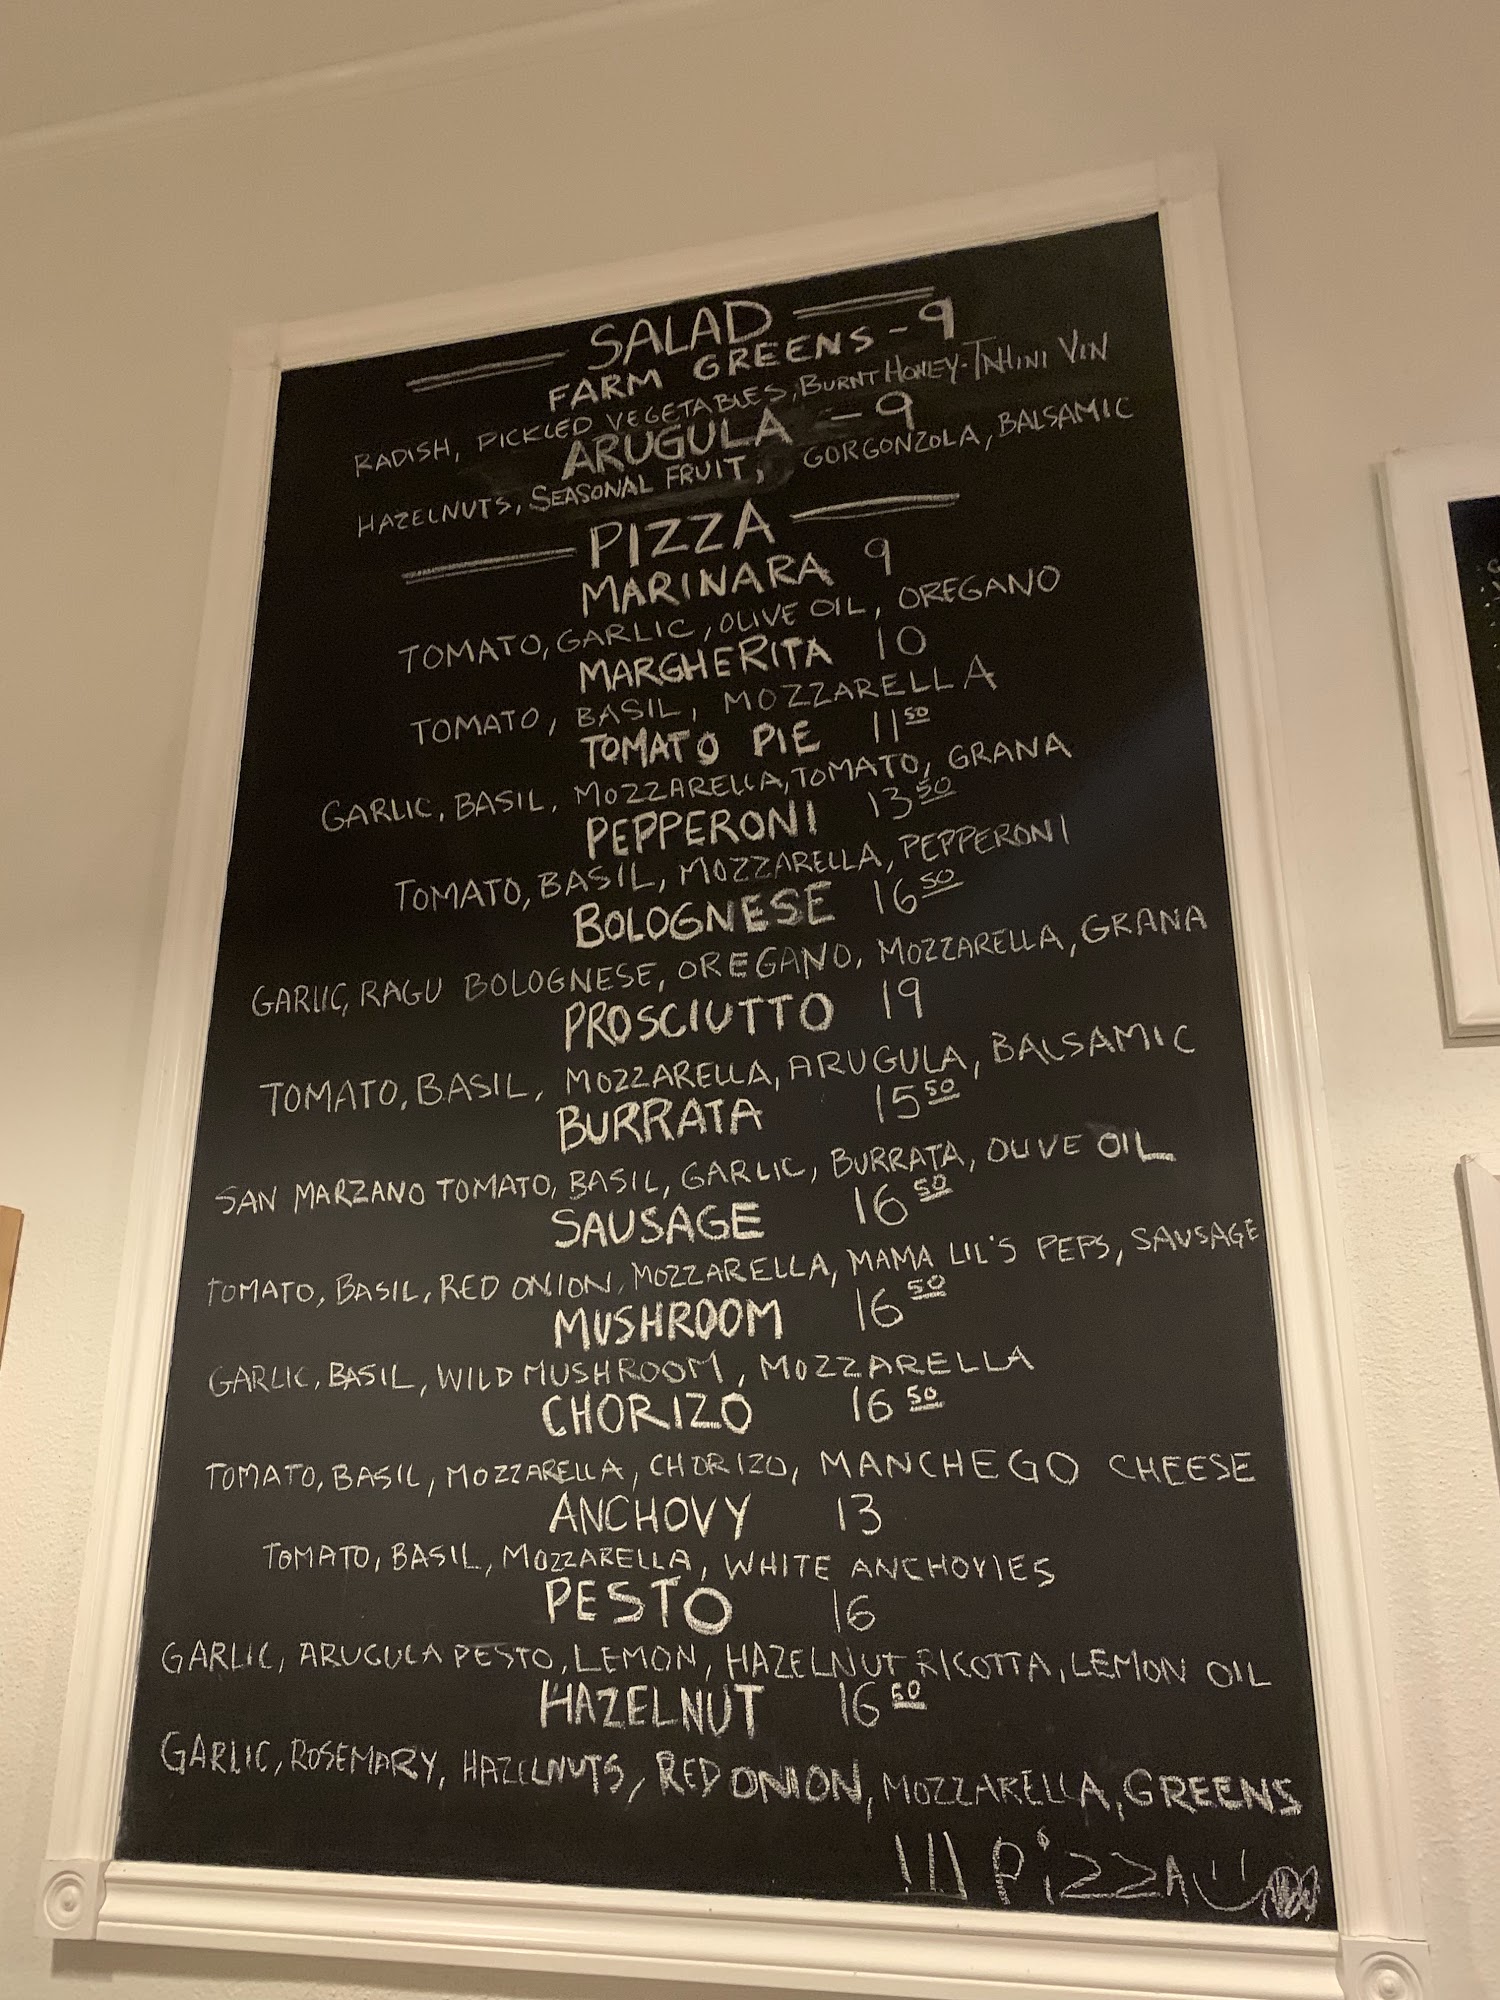 SALAD
FARM GREENS - 9
RADISH, PICKLED VEGETABLES, BURNT HONEY-TAHINI VIN
ARUGULA - 9
HAZELNUTS, SEASONAL FRUIT, GORGONZOLA, BALSAMIC
PIZZA
MARINARA 9
TOMATO, GARLIC, OLIVE OIL, OREGANO
MARGHERITA 10
TOMATO, BASIL, MOZZARELLA
TOMATO PIE 11 50
GARLIC, BASIL, MOZZARELLA, TOMATO, GRANA
PEPPERONI 13 50
TOMATO, BASIL, MOZZARELLA, PEPPERONI
BOLOGNESE 16 50
GARLIC, RAGU BOLOGNESE, OREGANO, MOZZARELLA, GRANA
PROSCIUTTO 19
TOMATO, BASIL, MOZZARELLA, ARUGULA, BALSAMIC
BURRATA 15 50
SAN MARZANO TOMATO, BASIL, GARLIC, BURRATA, OLIVE OIL
SAUSAGE 16 50
TOMATO, BASIL, RED ONION, MOZZARELLA, MAMA LIL'S PEPS, SAUSAGE
MUSHROOM 16 50
GARLIC, BASIL, WILD MUSHROOM, MOZZARELLA
CHORIZO 16 50
TOMATO, BASIL, MOZZARELLA, CHORIZO, MANCHEGO CHEESE
ANCHOVY 13
TOMATO, BASIL, MOZZARELLA, WHITE ANCHOVIES
PESTO 16
GARLIC, ARUGULA PESTO, LEMON, HAZELNUT RICOTTA, LEMON OIL
HAZELNUT 16 50
GARLIC, ROSEMARY, HAZELNUTS, RED ONION, MOZZARELLA, GREENS
!!! PiZZA